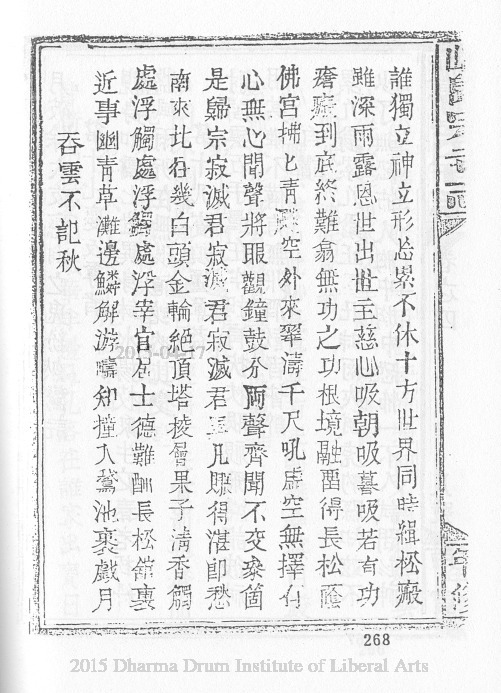 誰獨立神立形忘累不休十方世界同時緝松癜
雖深雨露恩世出世主慈心吸朝吸暮吸若有功
瘡癡到底終難翕無功之功根境融留得長松蔭
佛宮拂匕青 空外來翠濤千尺吼虛空無擇有
心無心聞聲將眼觀鐘鼓分兩聲齊聞不交參箇
是歸宗寂滅君寂滅君寂滅君 几賺得湛卽愁
南來北往幾白頭金輪絶頂塔棱層果子清香觸
處浮觸處浮觸處浮宰官居士德難酬長松舘裏
近事幽青草灘邊鱗解游疇知撞入鵞池裏戱月
吞雲不記秋
268
2015-04-17
2015 Dharma Drum Institute of Liberal Arts